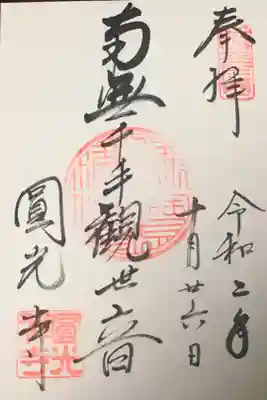 奉拝
令和二年
十月廿六日
南無千手観世音
圓光寺
圓光